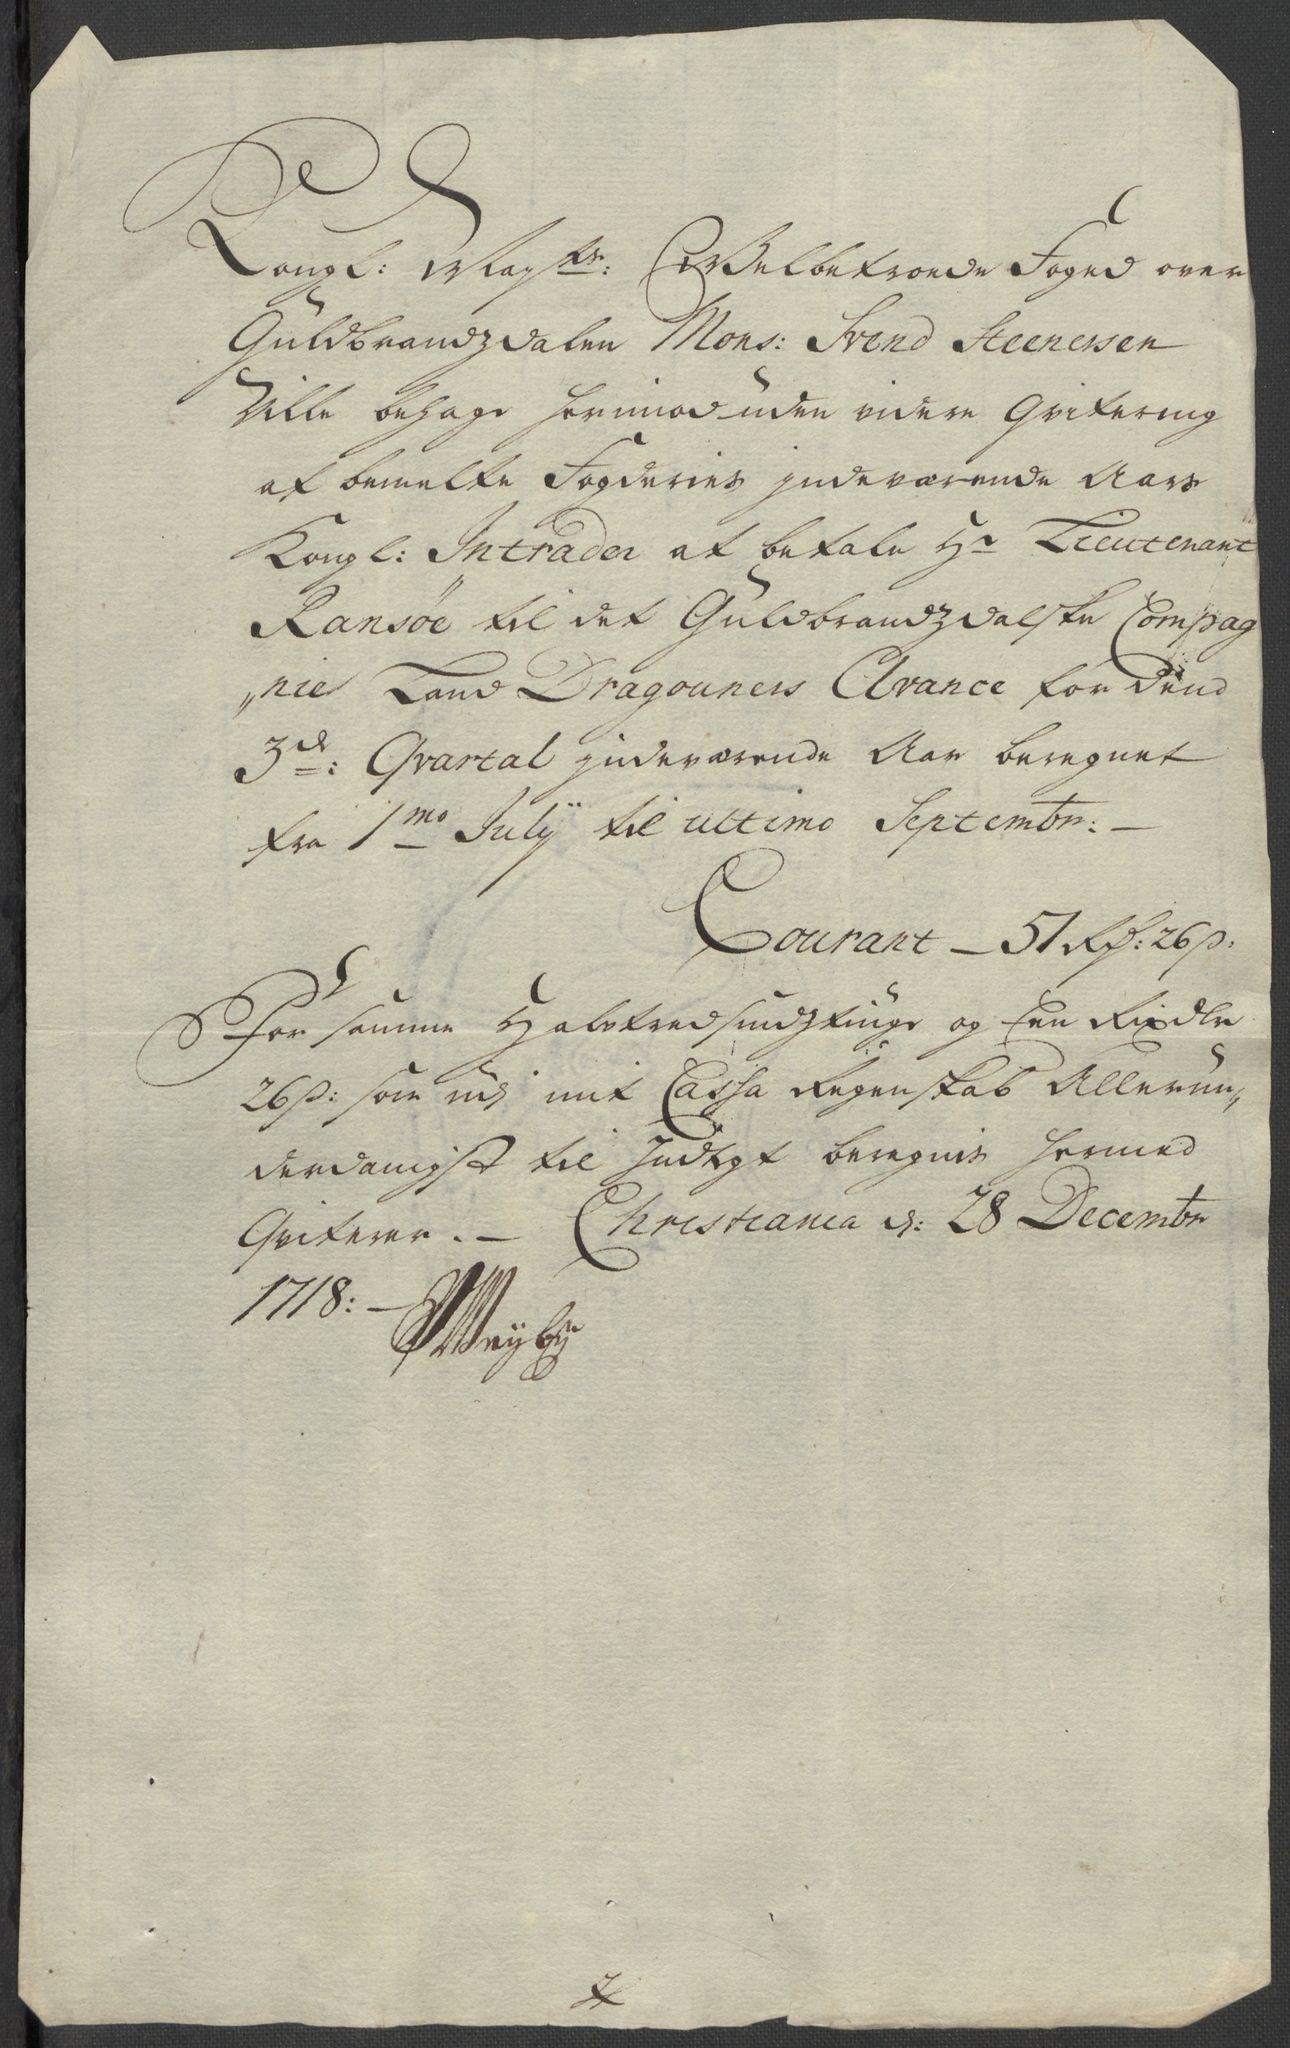 Kongl: Mayst: Velbetroede Foged over
Guldbrandzdalen Mons: Svend Steenersen
Ville behage herimod uden videre Qvitering
af bemelte Fogderies indeværende Aars
Kongl: Intrader at betale Hr Lieutenant
Ransöe til det Guldbrandzdalske Compag
„nie Land Dragouners Avance for dend
3de: Qvartal indeværende Aar beregnet
fra 1mo Julÿ til ultimo Septembr: —
Courant — 51 Rd: 26 s:
For samme Halvtredsindztiuge og Een Rixdlr
26 s: som udj mit Cassa Regenskab Allerun„
derdanigst til Indtegt beregnis hermed
Qviterer. — Christiania d: 28 Decembr
1718: —